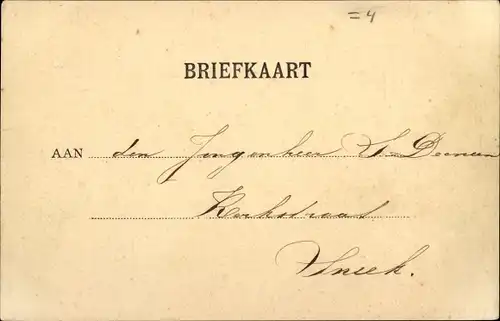 =4
BRIEFKAART
AAN den Jongenheer S. Deenen
Kerkstraat
Sneek.